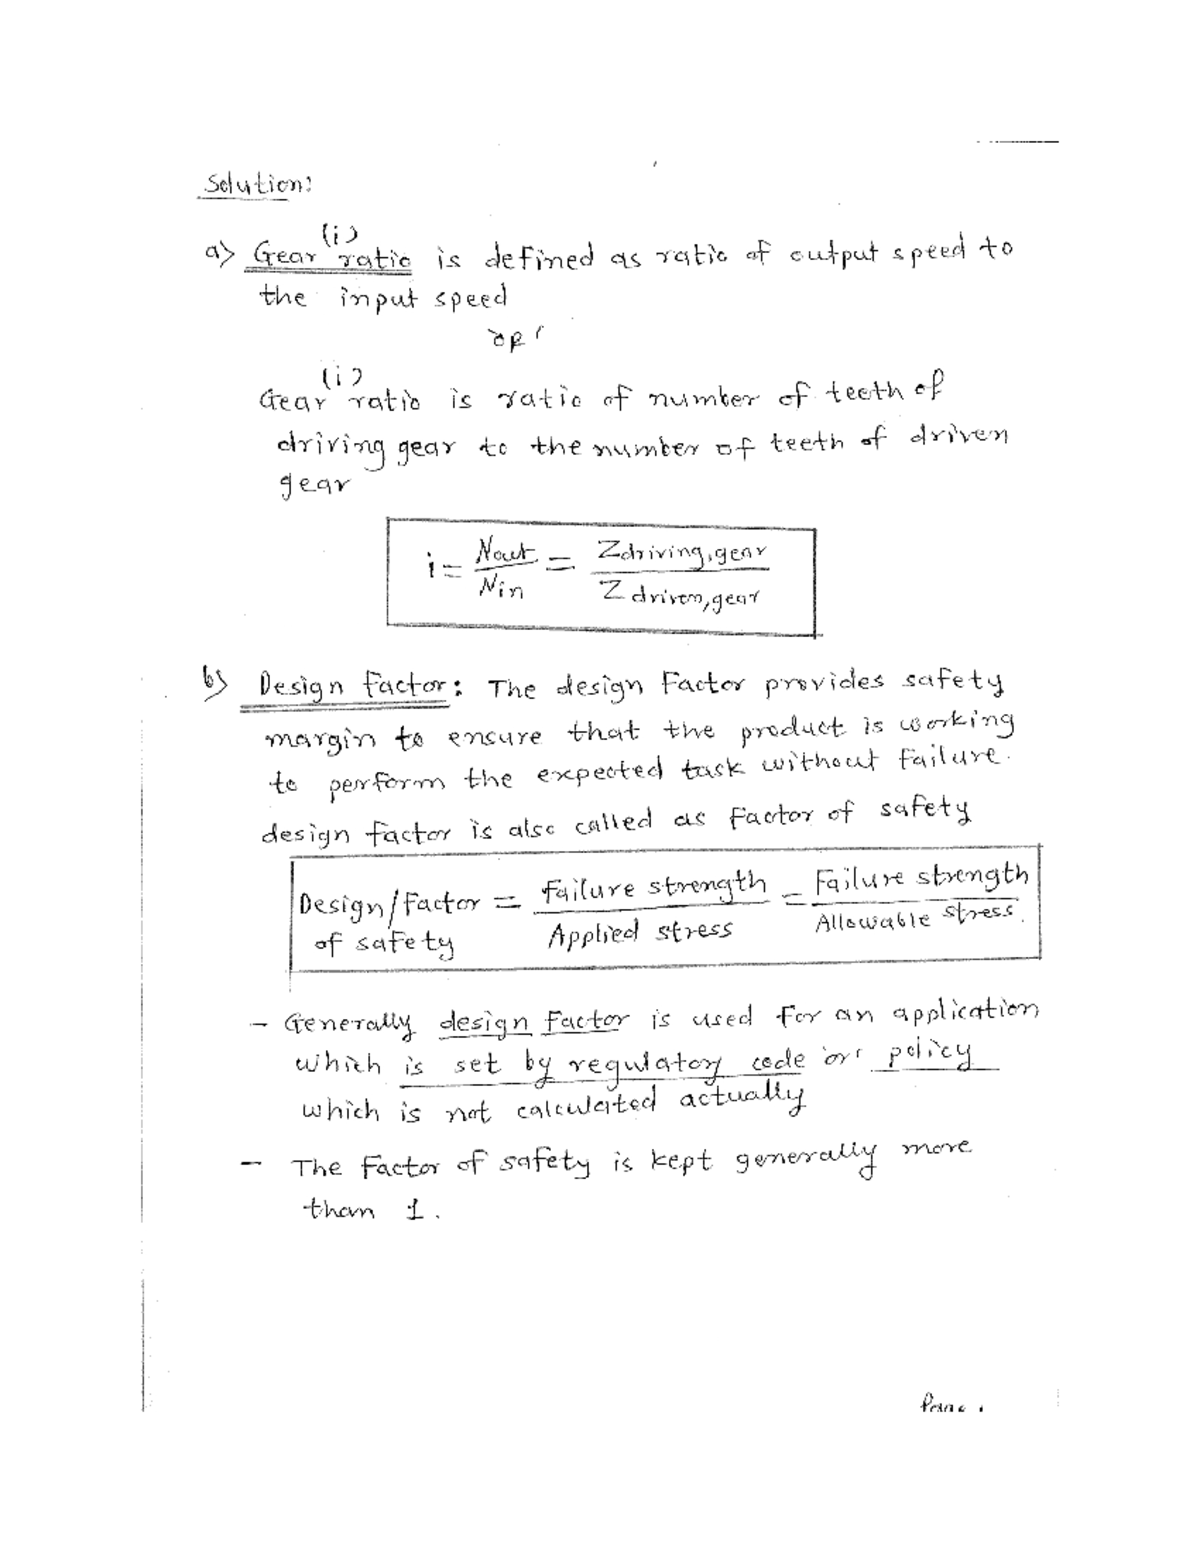 Solution:
(i)
a) Gear ratio is defined as ratio of output speed to
the input speed
or
(i)
Gear ratio is ratio of number of teeth of
driving gear to the number of teeth of driven
gear
i = Nout / Nin = Zdriving, gear / Z driven, gear
b) Design factor: The design Factor provides safety
margin to ensure that the product is working
to perform the expected task without failure.
design factor is also called as Factor of safety
Design/Factor of safety = Failure strength / Applied stress = Failure strength / Allowable stress.
- Generally design factor is used for an application
which is set by regulatory code or policy
which is not calculated actually
- The factor of safety is kept generally more
than 1.